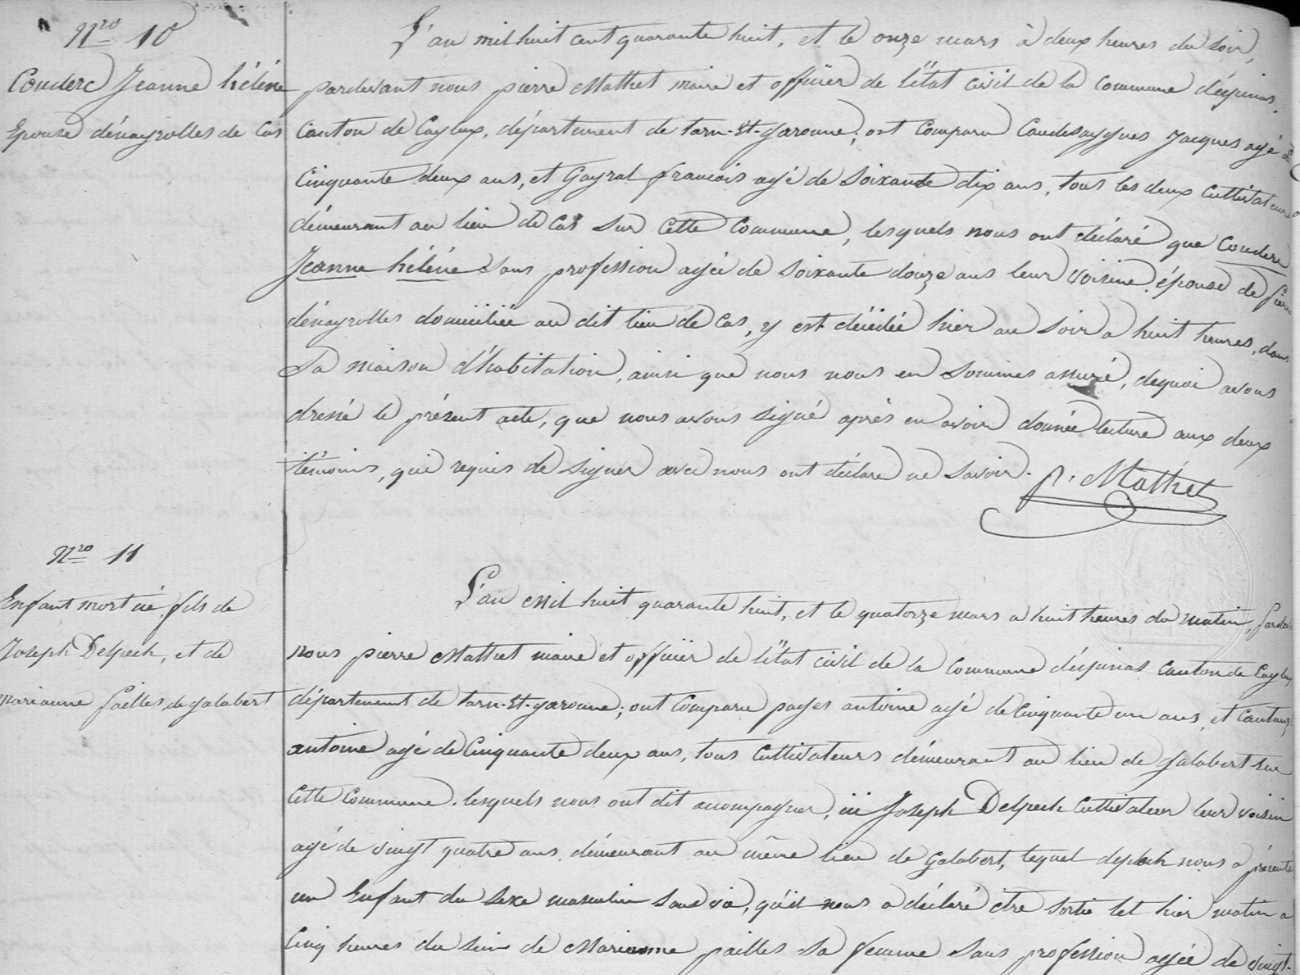 Nro 10
Couderc Jeanne hélène
Epouse dénayrolles de Cas
L'an mil huit cent quarante huit, et le onze mars à deux heures du soir,
pardevant nous pierre Mathet maire et officier de l'état civil de la commune d'espinas,
Canton de Caylux, département de tarn-et-garonne; ont comparu Caudesaygues Jacques agé de
Cinquante deux ans, et Gayral francois agé de Soixante dix ans, tous les deux Cultivateurs
démeurant au lieu de Cas sur cette Commune, lesquels nous ont déclaré que Couderc
Jeanne hélène Sans profession agée de soixante douze ans leur voisine, épouse de pierre
dénayrolles domiciliée au dit lieu de Cas, y est décédée hier au soir a huit heures, dans
Sa maison d'habitation, ainsi que nous nous en sommes assuré, dequoi avons
dressé le présent acte, que nous avons signé après en avoir donnée lecture aux deux
témoins, qui requis de signer avec nous ont déclare ne savoir.
p. Mathet
Nro 11
Enfant mort né, fils de
Joseph Delpech, et de
marianne pailles, de galabert
L'an Mil huit quarante huit, et le quatorze mars a huit heures du matin, pardevt
nous pierre Mathet maire et officier de l'état civil de la commune d'espinas Canton de Caylux
département de tarn-et-garonne; ont Comparu pages antoine agé de Cinquante un ans, et
antoine agé de Cinquante deux ans, tous Cultivateurs démeurant au lieu de galabert sur
Cette Commune. lesquels nous ont dit acompagner, ici Joseph Delpech Cultivateur leur voisin
agé de vingt quatre ans, démeurant au même lieu de Galabert, lequel delpech nous a présenté
un Enfant du Sexe masculin Sans vie, qu'il nous a déclaré être sorti let hier matin a
Cinq heures du Sein de Marianne pailles Sa femme Sans profession agée de vingt-